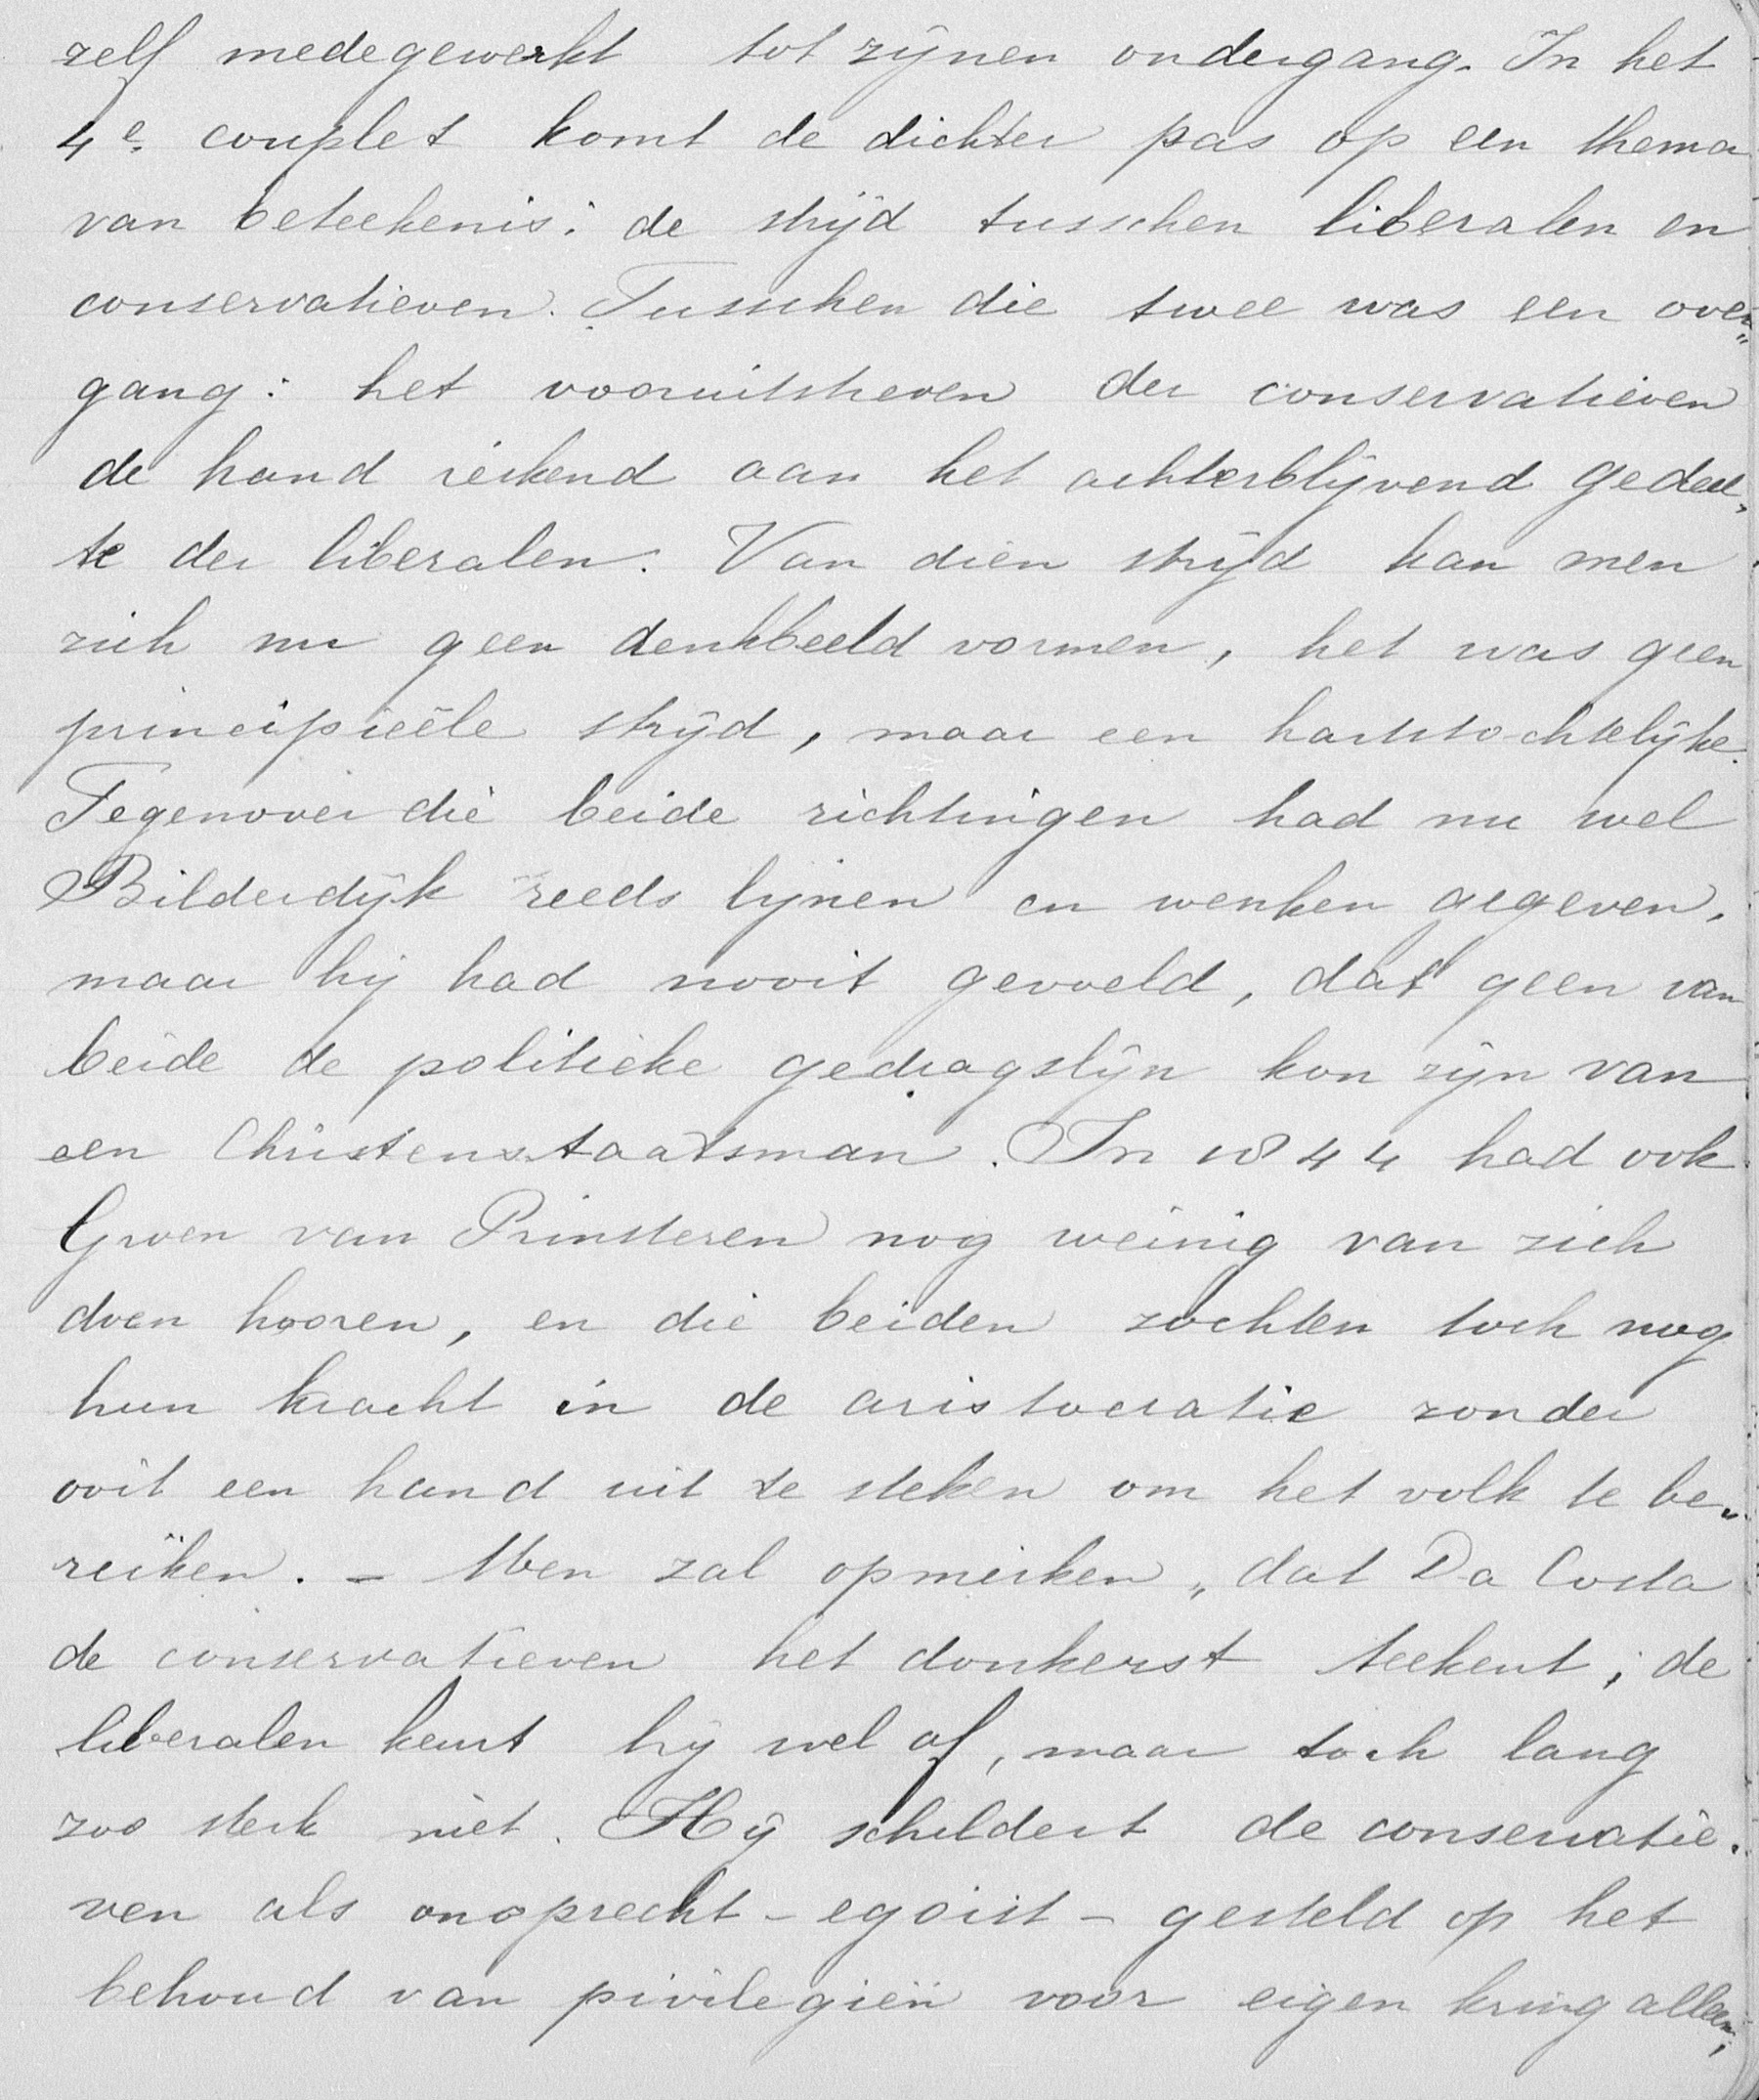 zelf medegewerkt tot zijnen ondergang. In het
4e couplet komt de dichter pas op een thema
van beteekenis: de strijd tusschen liberalen en
conservatieven. Tusschen die twee was een over„
gang: het vooruitstreven der conservatieven
de hand reikend aan het achterblijvend gedeel„
te der liberalen. Van dien strijd kan men
zich nu geen denkbeeld vormen, het was geen
principieële strijd, maar een hartstochtelijke.
Tegenover die beide richtingen had nu wel
Bilderdijk reeds lijnen en wenken gegeven,
maar hij had nooit gevoeld, dat geen van
beide de politieke gedragslijn kon zijn van
een Christenstaatsman. In 1844 had ook
Groen van Prinsteren nog weinig van zich
doen hooren, en die beiden zochten toch nog
hun kracht in de aristocratie zonder
ooit een hand uit te steken om het volk te be„
reiken. – Men zal opmerken, dat Da Costa
de conservatieven het donkerst teekent; de
liberalen keurt hij wel af, maar toch lang
zoo sterk niet. Hij schildert de conservatie„
ven als onoprecht – egoist – gesteld op het
behoud van privilegiën voor eigen kring alleen;